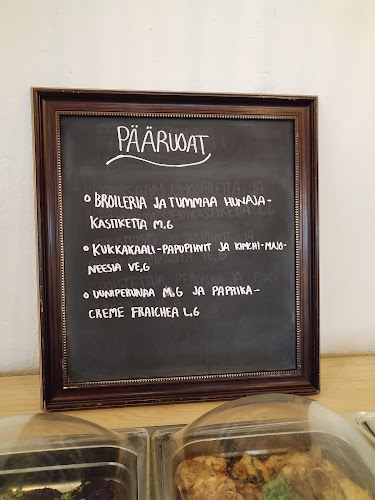 PÄÄRUOAT
BROILERIA JA TUMMAA HUNAJA-
KASTIKETTA M,G
KUKKAKAALI-PAPUPIHVIT JA KIMCHI-MAJO-
NEESIA VE,G
UUNIPERUNAA M,G JA PAPRIKA-
CREME FRAICHEA L,G